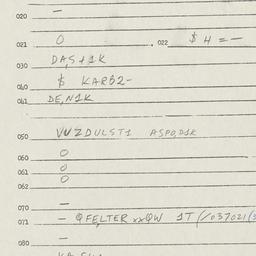 020 —
021 0 . 022 $ H = —
030 DA,S+1K
$ KAR52-
040
041 DE,N1K
050 VVZDULST1 ASPO,D1K
060 0
061 0
062 0
070 —
071 — QFELTER xxQW 1T(/037021(
—
080